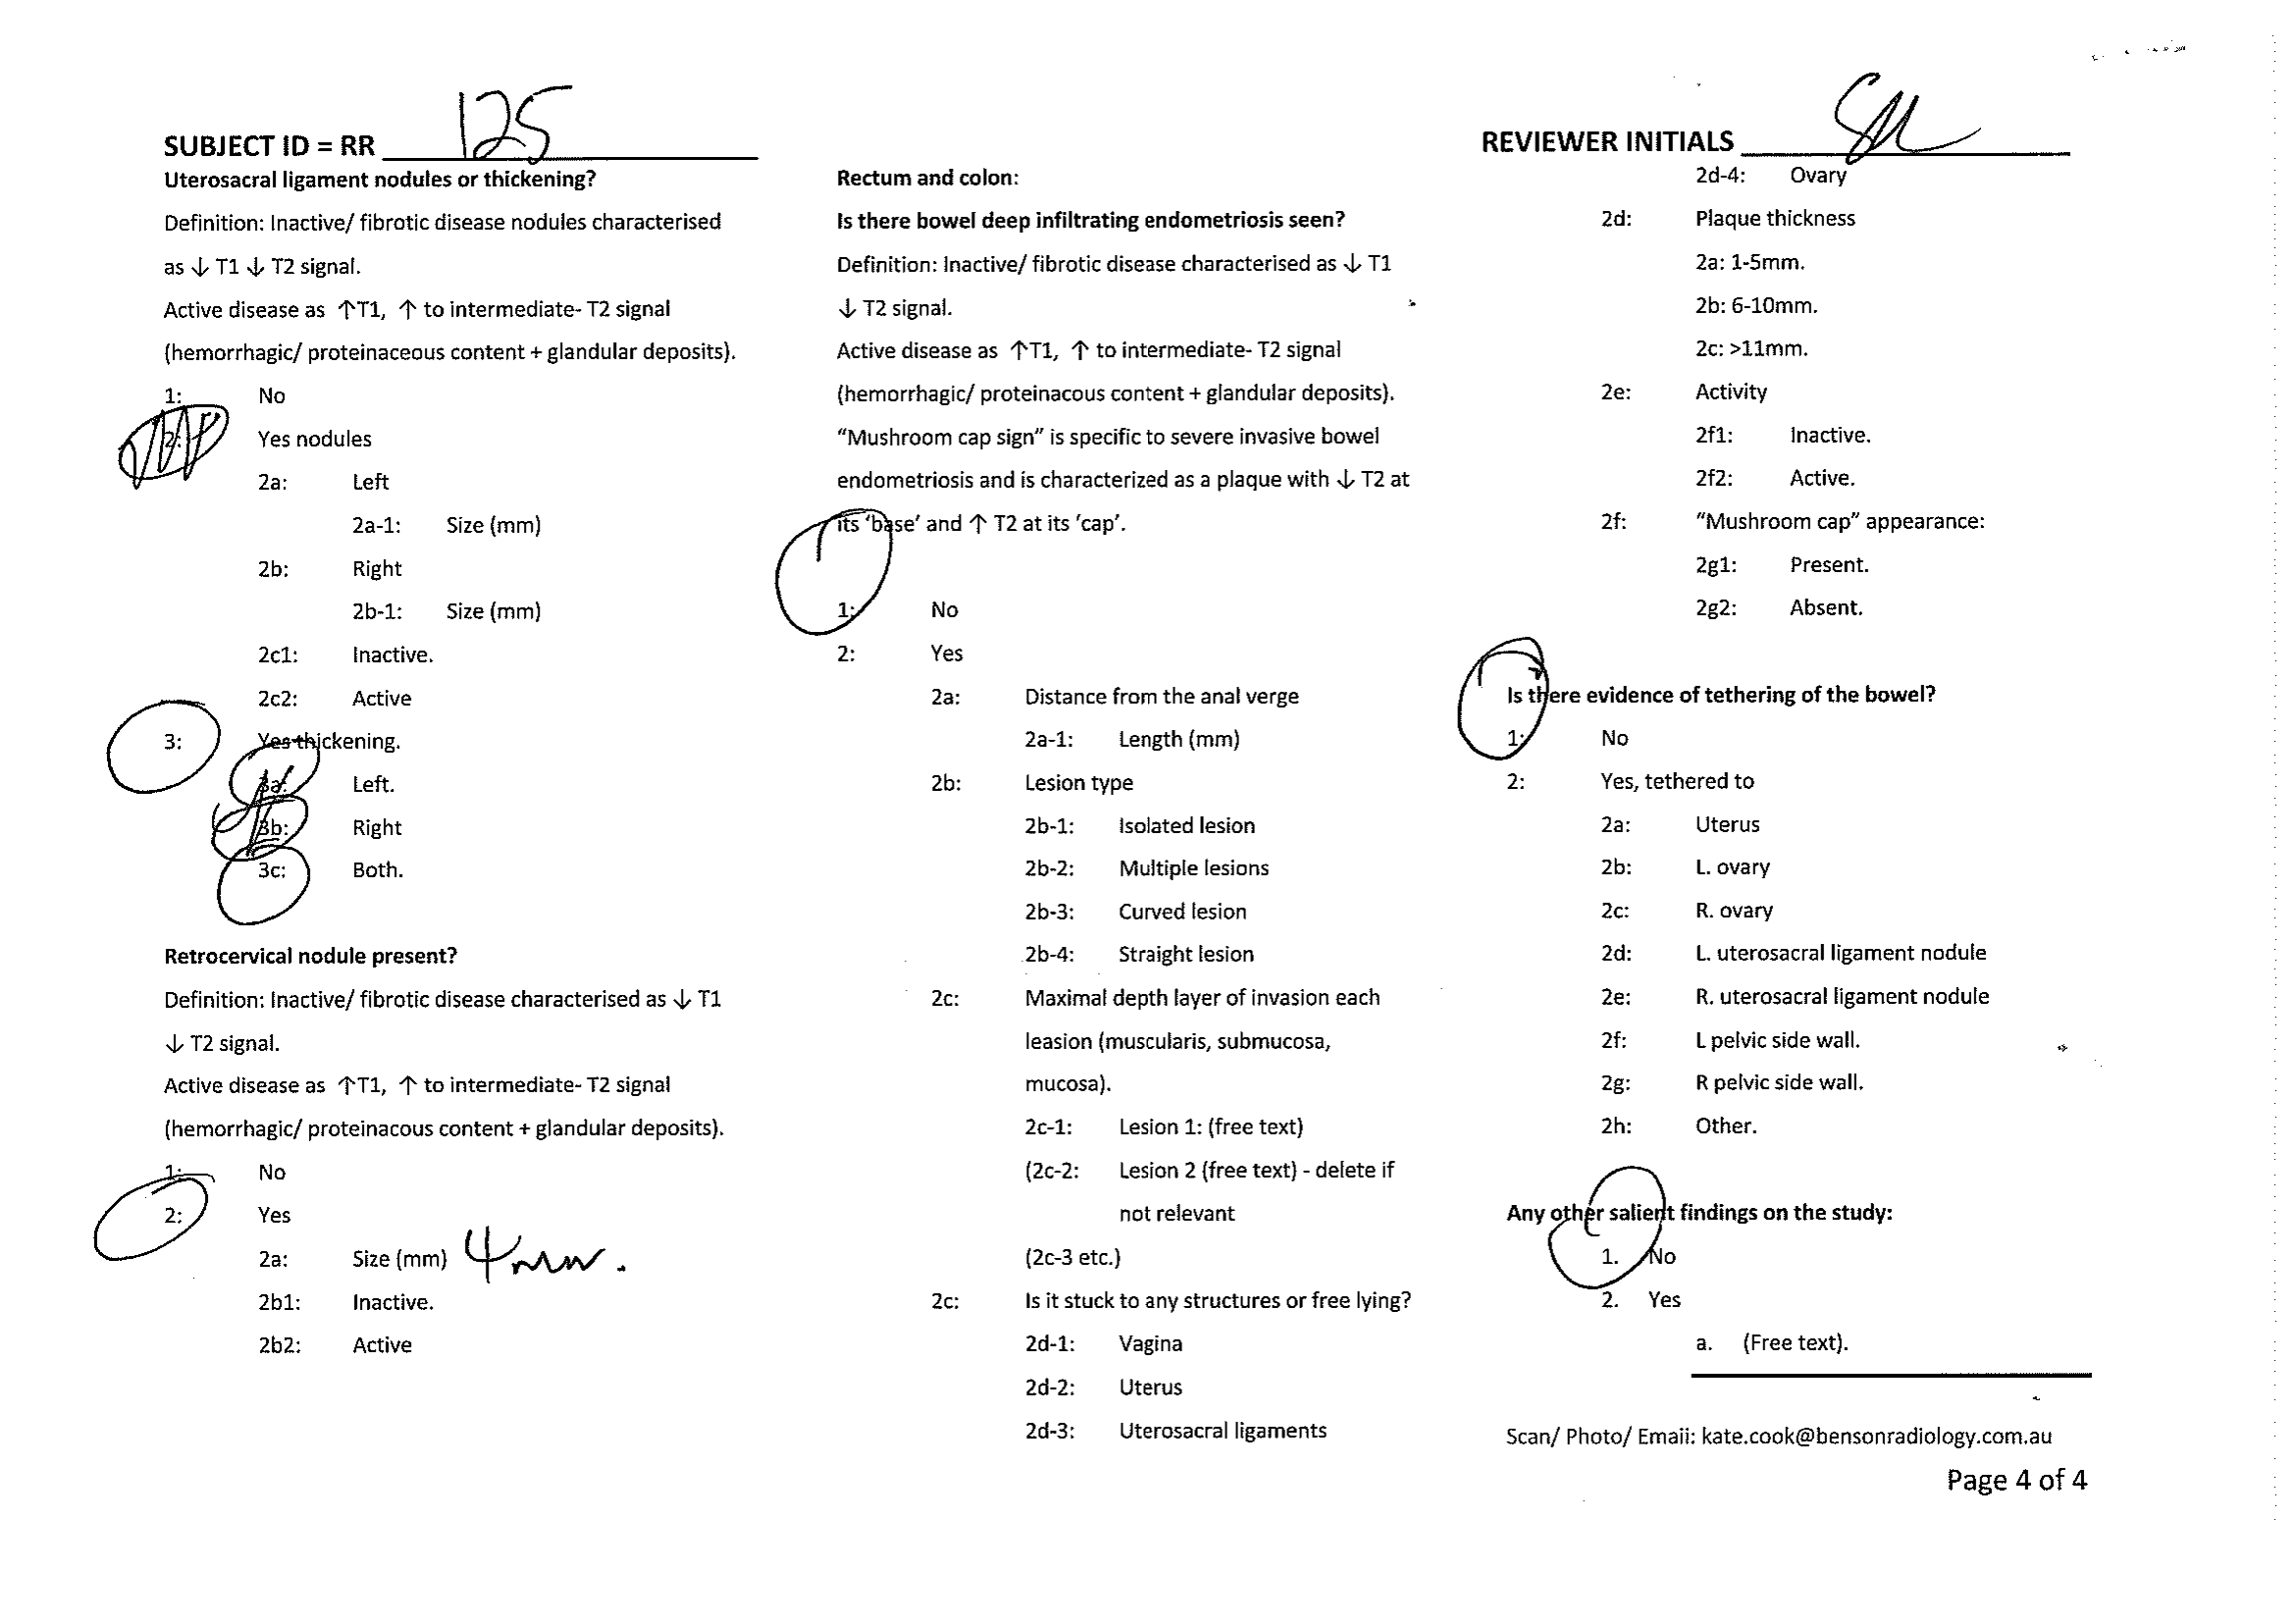 SUBJECT ID = RR 125
Uterosacral ligament nodules or thickening?
Definition: Inactive/ fibrotic disease nodules characterised
as ↓ T1 ↓ T2 signal.
Active disease as ↑T1, ↑ to intermediate- T2 signal
(hemorrhagic/ proteinaceous content + glandular deposits).
1: No
2: Yes nodules
2a: Left
2a-1: Size (mm)
2b: Right
2b-1: Size (mm)
2c1: Inactive.
2c2: Active
3: Yes thickening.
3a: Left.
3b: Right
3c: Both.
Retrocervical nodule present?
Definition: Inactive/ fibrotic disease characterised as ↓ T1
↓ T2 signal.
Active disease as ↑T1, ↑ to intermediate- T2 signal
(hemorrhagic/ proteinacous content + glandular deposits).
1: No
2: Yes
2a: Size (mm) 4mm.
2b1: Inactive.
2b2: Active
Rectum and colon:
Is there bowel deep infiltrating endometriosis seen?
Definition: Inactive/ fibrotic disease characterised as ↓ T1
↓ T2 signal.
Active disease as ↑T1, ↑ to intermediate- T2 signal
(hemorrhagic/ proteinacous content + glandular deposits).
“Mushroom cap sign” is specific to severe invasive bowel
endometriosis and is characterized as a plaque with ↓ T2 at
its ‘base’ and ↑ T2 at its ‘cap’.
1: No
2: Yes
2a: Distance from the anal verge
2a-1: Length (mm)
2b: Lesion type
2b-1: Isolated lesion
2b-2: Multiple lesions
2b-3: Curved lesion
2b-4: Straight lesion
2c: Maximal depth layer of invasion each
leasion (muscularis, submucosa,
mucosa).
2c-1: Lesion 1: (free text)
(2c-2: Lesion 2 (free text) - delete if
not relevant
(2c-3 etc.)
2c: Is it stuck to any structures or free lying?
2d-1: Vagina
2d-2: Uterus
2d-3: Uterosacral ligaments
REVIEWER INITIALS
2d-4: Ovary
2d: Plaque thickness
2a: 1-5mm.
2b: 6-10mm.
2c: >11mm.
2e: Activity
2f1: Inactive.
2f2: Active.
2f: “Mushroom cap” appearance:
2g1: Present.
2g2: Absent.
Is there evidence of tethering of the bowel?
1: No
2: Yes, tethered to
2a: Uterus
2b: L. ovary
2c: R. ovary
2d: L. uterosacral ligament nodule
2e: R. uterosacral ligament nodule
2f: L pelvic side wall.
2g: R pelvic side wall.
2h: Other.
Any other salient findings on the study:
1. No
2. Yes
a. (Free text).
Scan/ Photo/ Email: kate.cook@bensonradiology.com.au
Page 4 of 4